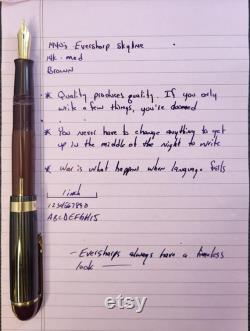 1940s Eversharp Skyline
14k - med
Brown
* Quantity produces quality. If you only
write a few things, you're doomed
* You never have to change anything to get
up in the middle of the night to write
* War is what happens when language fails
1 inch
1234567890
ABCDEFGHIJ
- Eversharps always have a timeless
look
Etsy